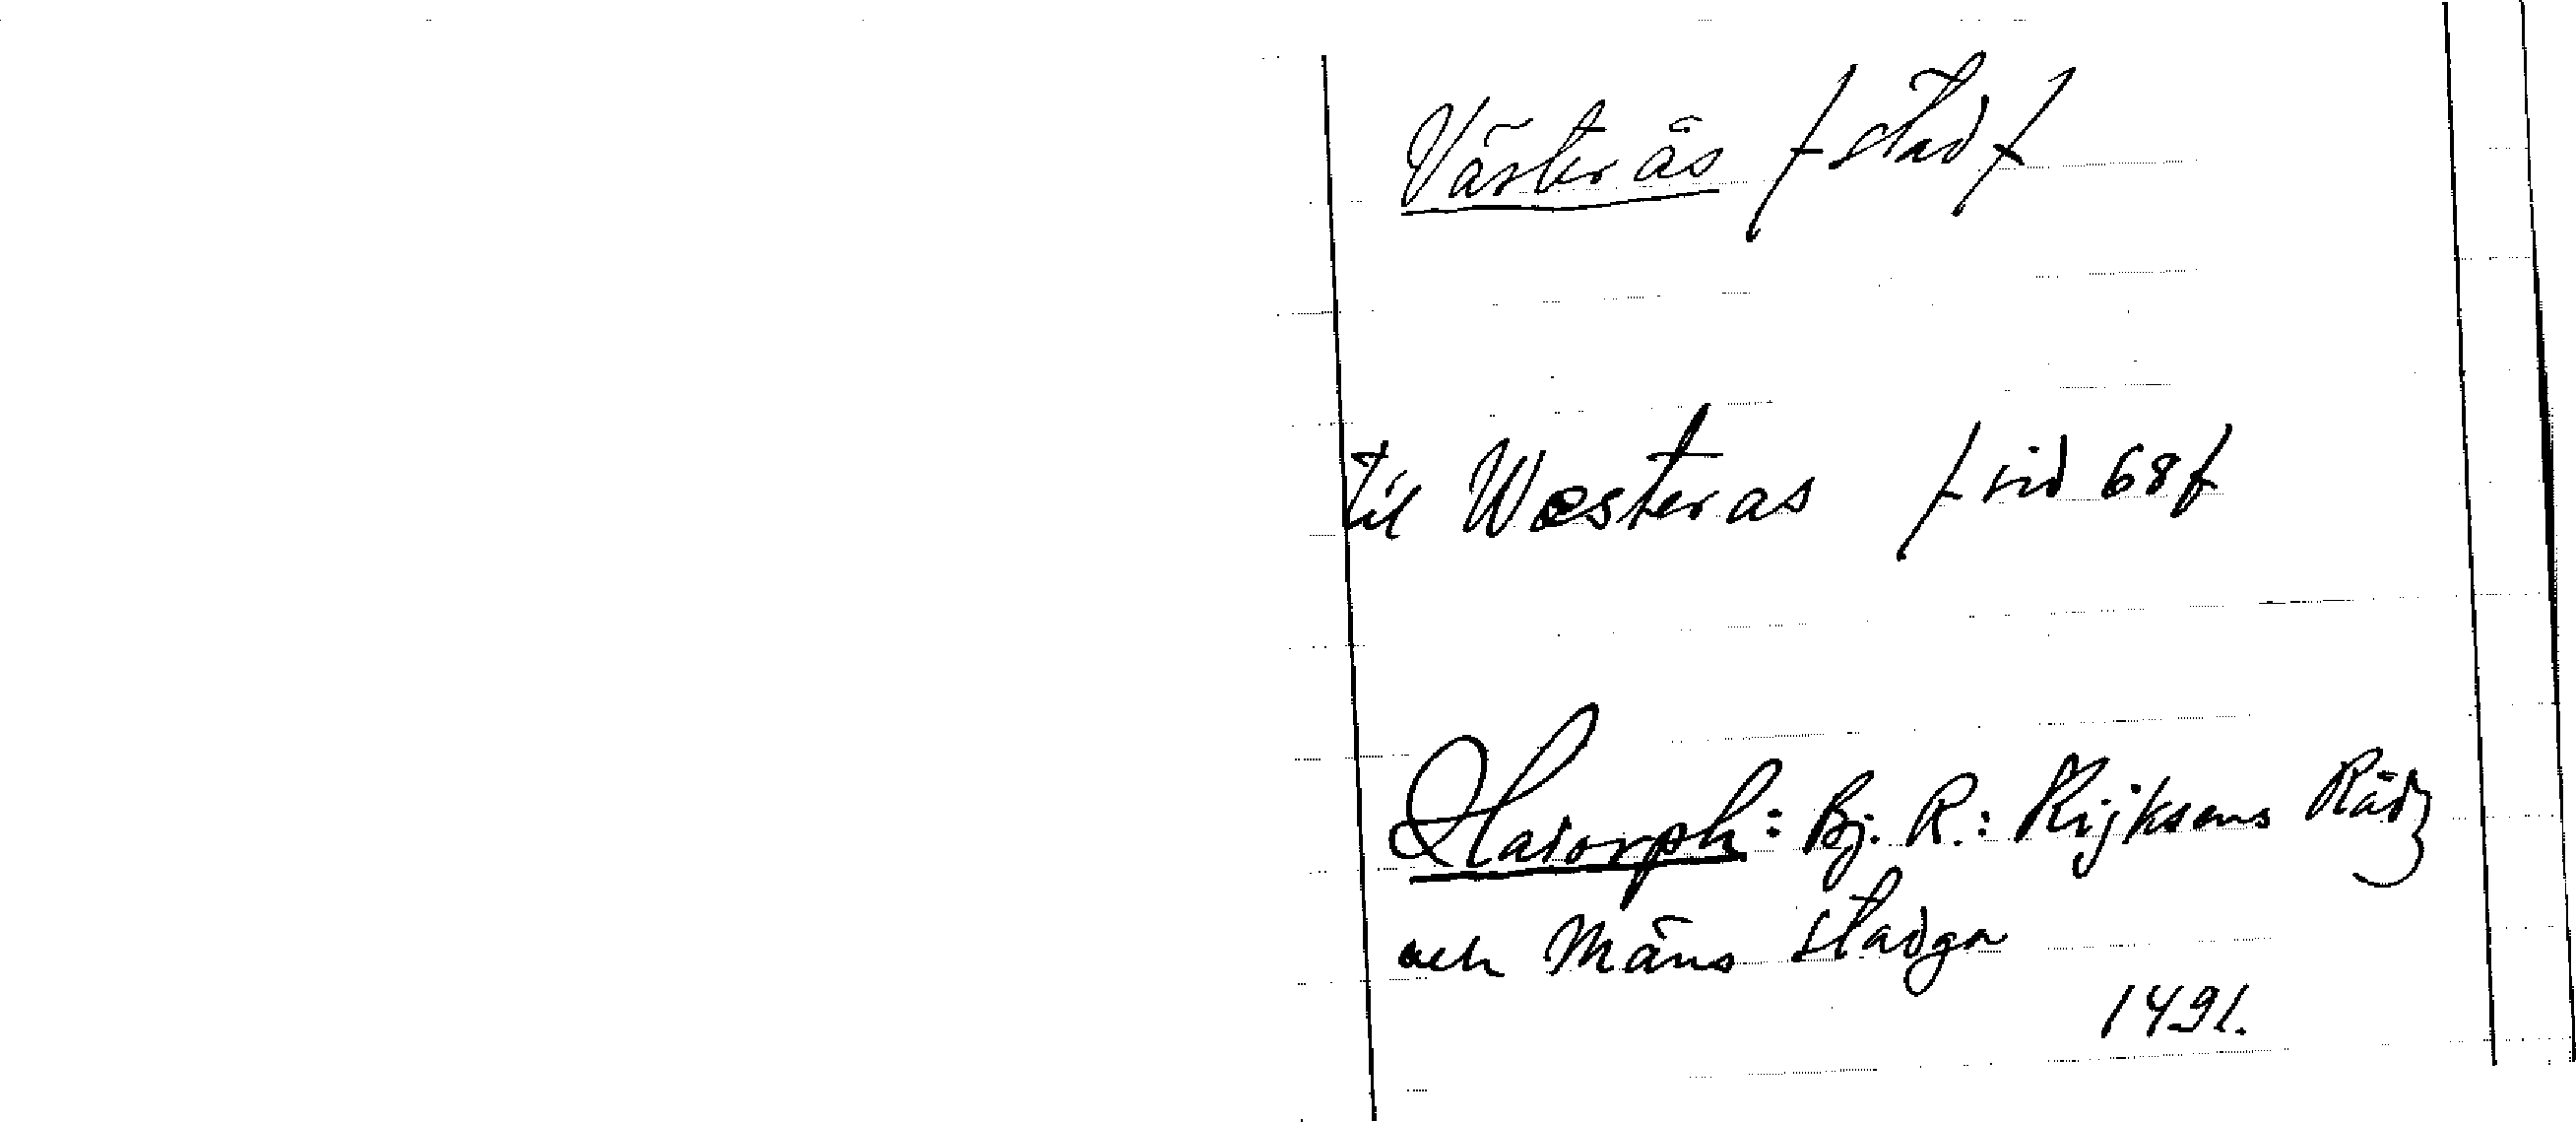 Västerås /stad/
til Wæsteras /sid 68/
Hadorph: Bj. R.: Rijksens Rådz
och Mäns stadga
1491.